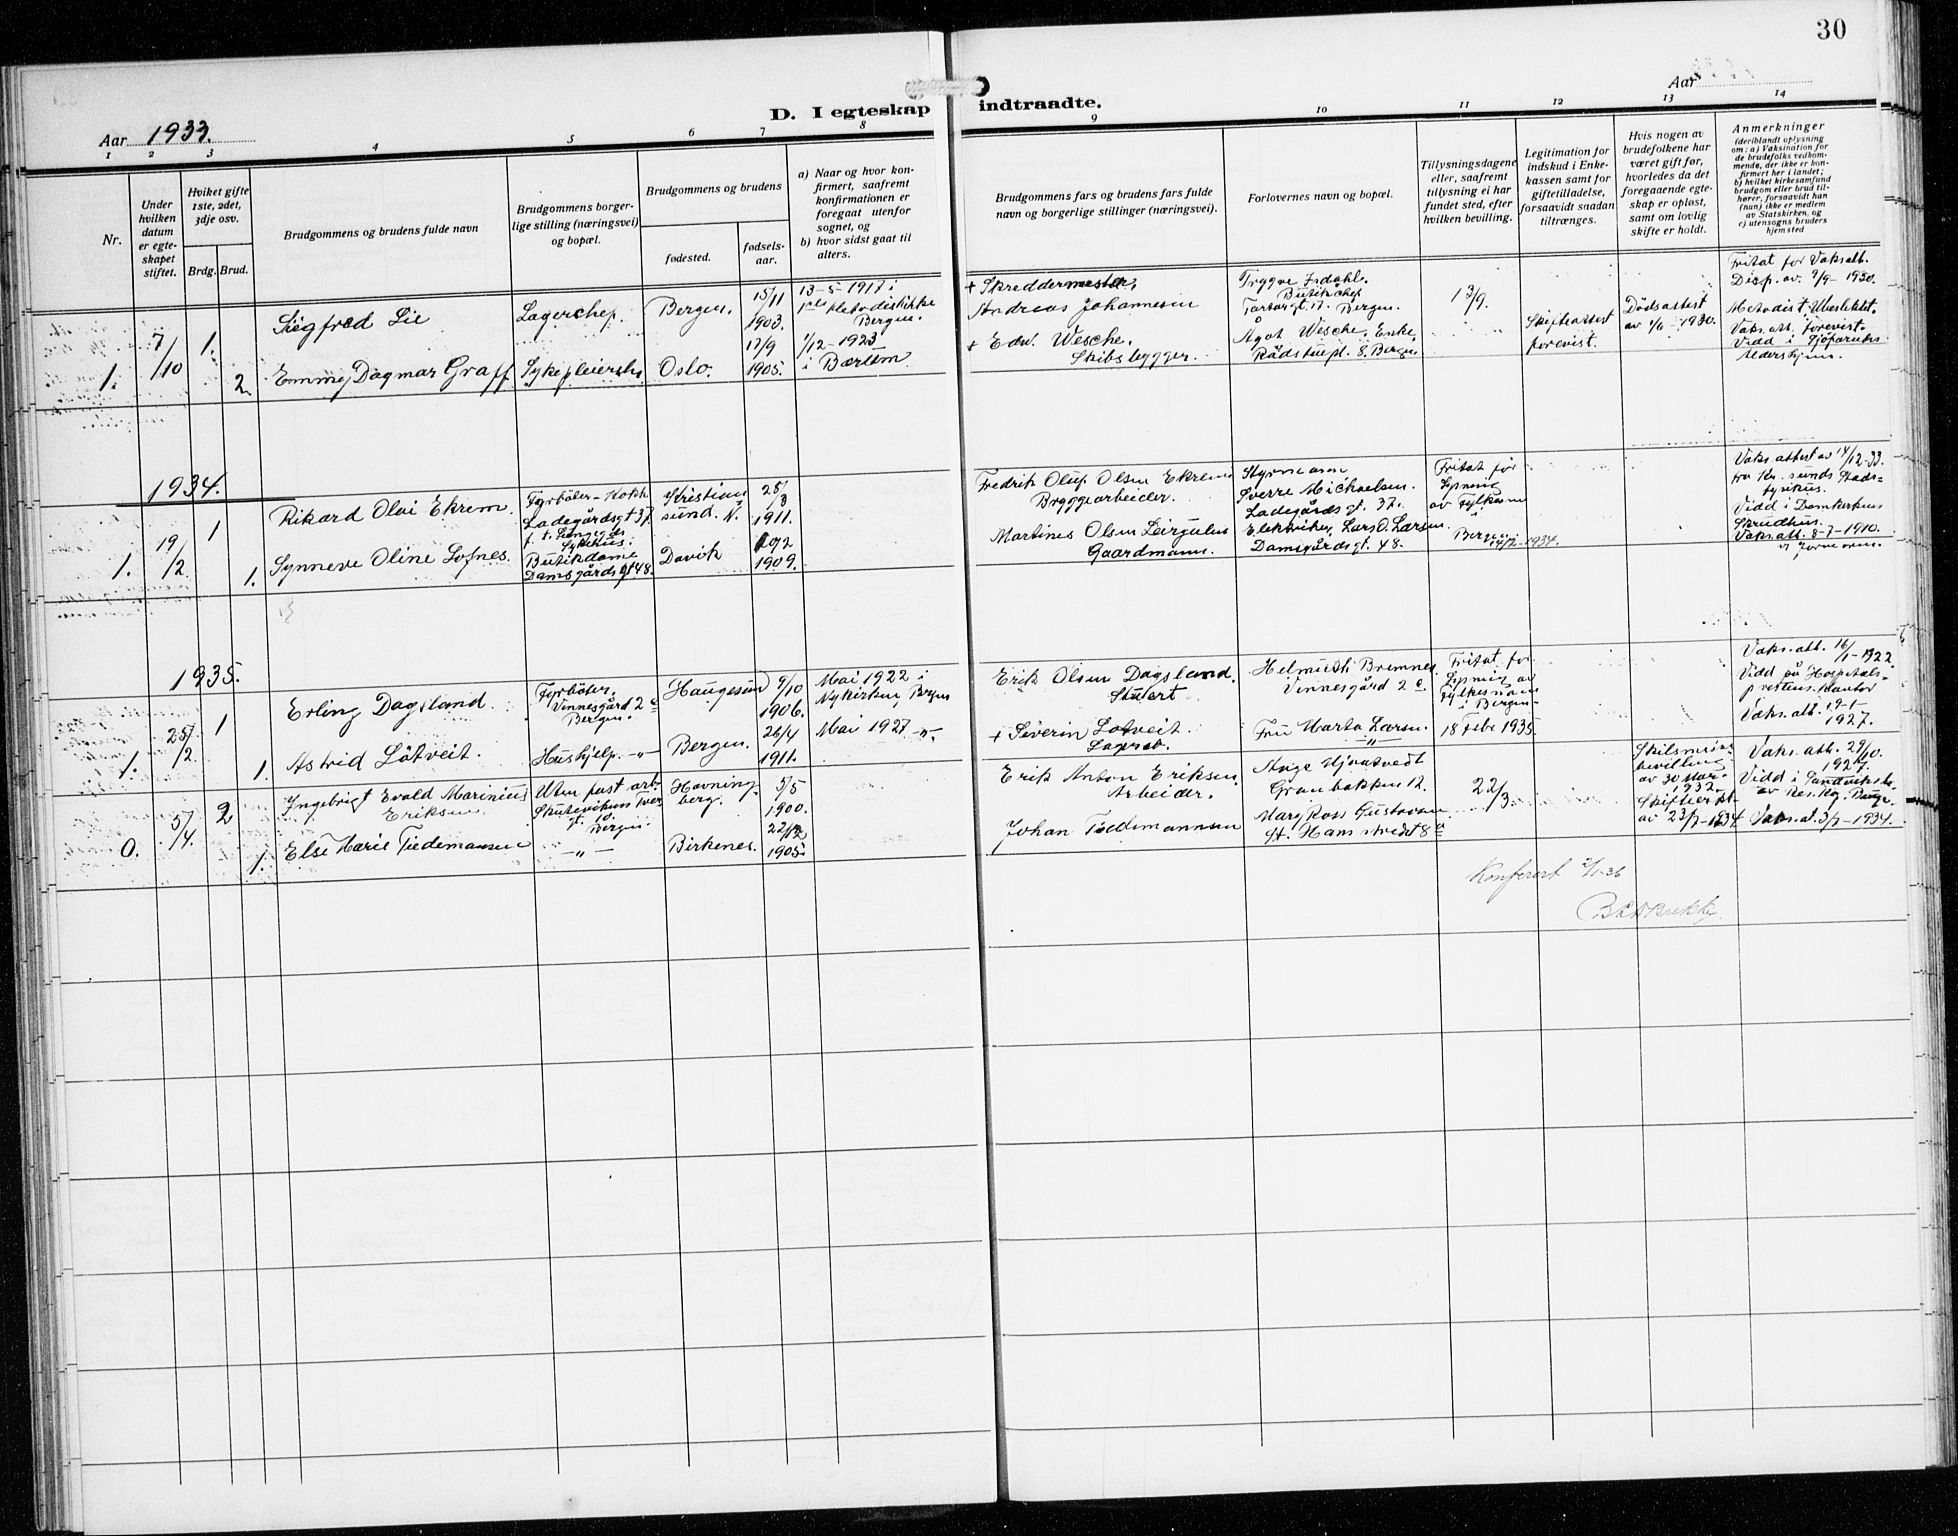 30
Aar 1933.
D. I egteskap indtraadte.
Aar
1 2 3 4 5 6 7 8 9 10 11 12 13 14
Nr.
Under hvilken datum er egteskapet stiftet.
Hviket gifte 1ste, 2det, 3dje osv.
Brdg. Brud.
Brudgommens og brudens fulde navn
Brudgommens borgerlige stilling (næringsvei) og bopæl.
Brudgommens og brudens
fødested.
fødselsaar.
a) Naar og hvor konfirmert, saafremt konfirmationen er foregaat utenfor sognet, og
b) hvor sidst gaat til alters.
Brudgommens fars og brudens fars fulde navn og borgerlige stillinger (næringsvei).
Forlovernes navn og bopæl.
Tillysningsdagene eller, saafremt tillysning ei har fundet sted, efter hvilken bevilling.
Legitimation for indskud i Enkekassen samt for giftetilladelse, forsaavidt saadan tiltrænges.
Hvis nogen av brudefolkene har været gift før, hvorledes da det foregaaende egteskap er opløst, samt om lovlig skifte er holdt.
Anmerkninger
(deriblandt oplysning om: a) Vaksination for de brudefolks vedkommende, der ikke er konfirmert her i landet; b) hvilket kirkesamfund brudgom eller brud tilhører, forsaavidt han (hun) ikke er medlem av Statskirken, og c) utensogns bruders hjemsted
1. 7/10 1. Sigfred Lie
Lagerchef. Bergen. 15/11 1903.
13-5-1917 i 1ste Metodistkirke Bergen.
+ Skreddermester, Andreas Johannesen
Trygve Isdahl. Butikchef Bergen.
13/9.
Fritat for Vaksatt. Disp. av 9/9-1930.
2 Emmy Dagmar Graff
Sykepleierske Oslo. 17/9 1905.
1/12-1923 i Bærum
+ Edw. Wesche. Skibsbygger.
Ågot Wesche. Enke Rådstuepl. 8. Bergen
Skifteattest forevist.
Dødsattest av 1930.
Vaks.att. forevist. Vidd i Sjöfarendes Aldershjem.
1934.
1. 19/2 1 Rikard Olai Ekrem.
Fyrböter - Kokk Ladegårdsgt 37. Sykehus.
Kristiansund. N. 1911.
Fredrik Oluf Olsen Ekrem Bryggearbeider.
Styrmann Sverre Michaelsen. Ladegårdsgt. 37.
Fritat for lysning av Fylkesmn i Bergen 1934.
Vaksattest av 14/12-33. fra Kr. sunds Stadsfysikus.
Vidd i Domkirkens Skrudhus.
1. Synneve Oline Lofnes.
Butikdame Damsgårdsgt 48. Davik 1909.
Martines Olsen Leirgulen Gaardmann.
Elektriker Lars O. Larsen. Damsgårdsgt. 48.
Vaks.att. 8-7-1910.
1935.
1. 25/2 1 Erling Dagsland.
Fyrböter. Vinnesgård 2 c Bergen.
Haugesund 9/10 1906.
Mai 1922 i Nykirken, Bergen
Erik Olsen Dagsland. Stuert
Helmuth Bremnes. Vinnesgård 2 c.
Fritat for lysning av Fylkesmann i Bergen 18 Febr 1935
Vaks.att. 16/1-1922. Vidd på Hospitalsprestens kontor
1. Astrid Lötveit.
Hushjelp. -"- Bergen. 26/4 1911.
Mai 1927 -"-
+ Severin Lötveit. Lagerarb.
Fru Marta Larsen. -"-
Vaks.att. 1927.
0. 5/4 2 Ingebrigt Evald Marinius Eriksen
Uten fast arb. Skuteviken 10. Bergen.
5/5 1900.
Erik Anton Eriksen Arbeider.
Aage Granbakken 12.
22/3.
Skilsmissebevilling av 30 Mar. 1932.
Vaks.att. 29/10. 1927.
Vidd i Sandvikskk.
1. Else Marie Tiedemansen
-"- Birkenes. 22/12 1905.
Johan Tiedemannsen
Mary Ross Gustavsen St. Hans stredet 8 a
Skifteatt. av 23/3-1934
Vaks.at. 3/7-1934.
Konferert 2/1-36